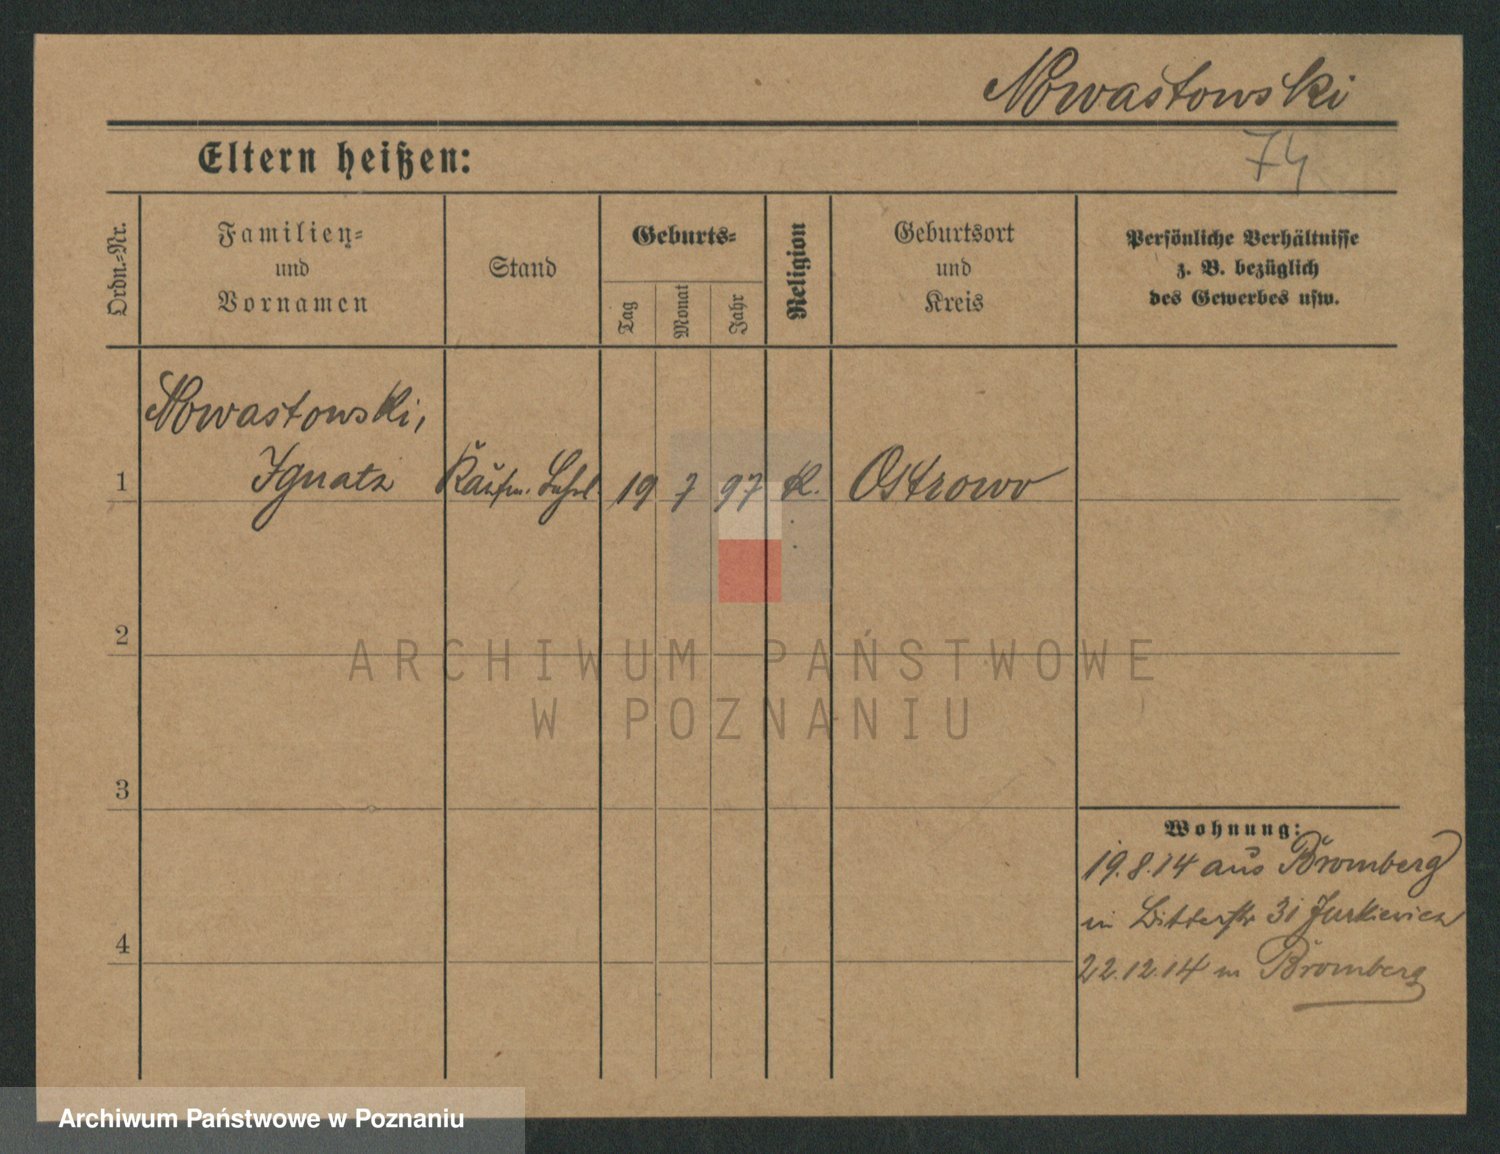 Nowastowski
Eltern heißen:
74
Ordn.-Nr.
Familien-
und
Vornamen
Stand
Geburts-
Tag
Monat
Jahr
Religion
Geburtsort
und
Kreis
Persönliche Verhältnisse
z. B. bezüglich
des Gewerbes usw.
Nowastowski,
1 Ignatz Kaufm. Lehrl. 19 7 97 K. Ostrowo
2
ARCHIWUM PAŃSTWOWE
W POZNANIU
3
Wohnung:
19.8.14 aus Bromberg
in Ritterstr 31 Jurkiewicz
4
22.12.14 in Bromberg
Archiwum Państwowe w Poznaniu